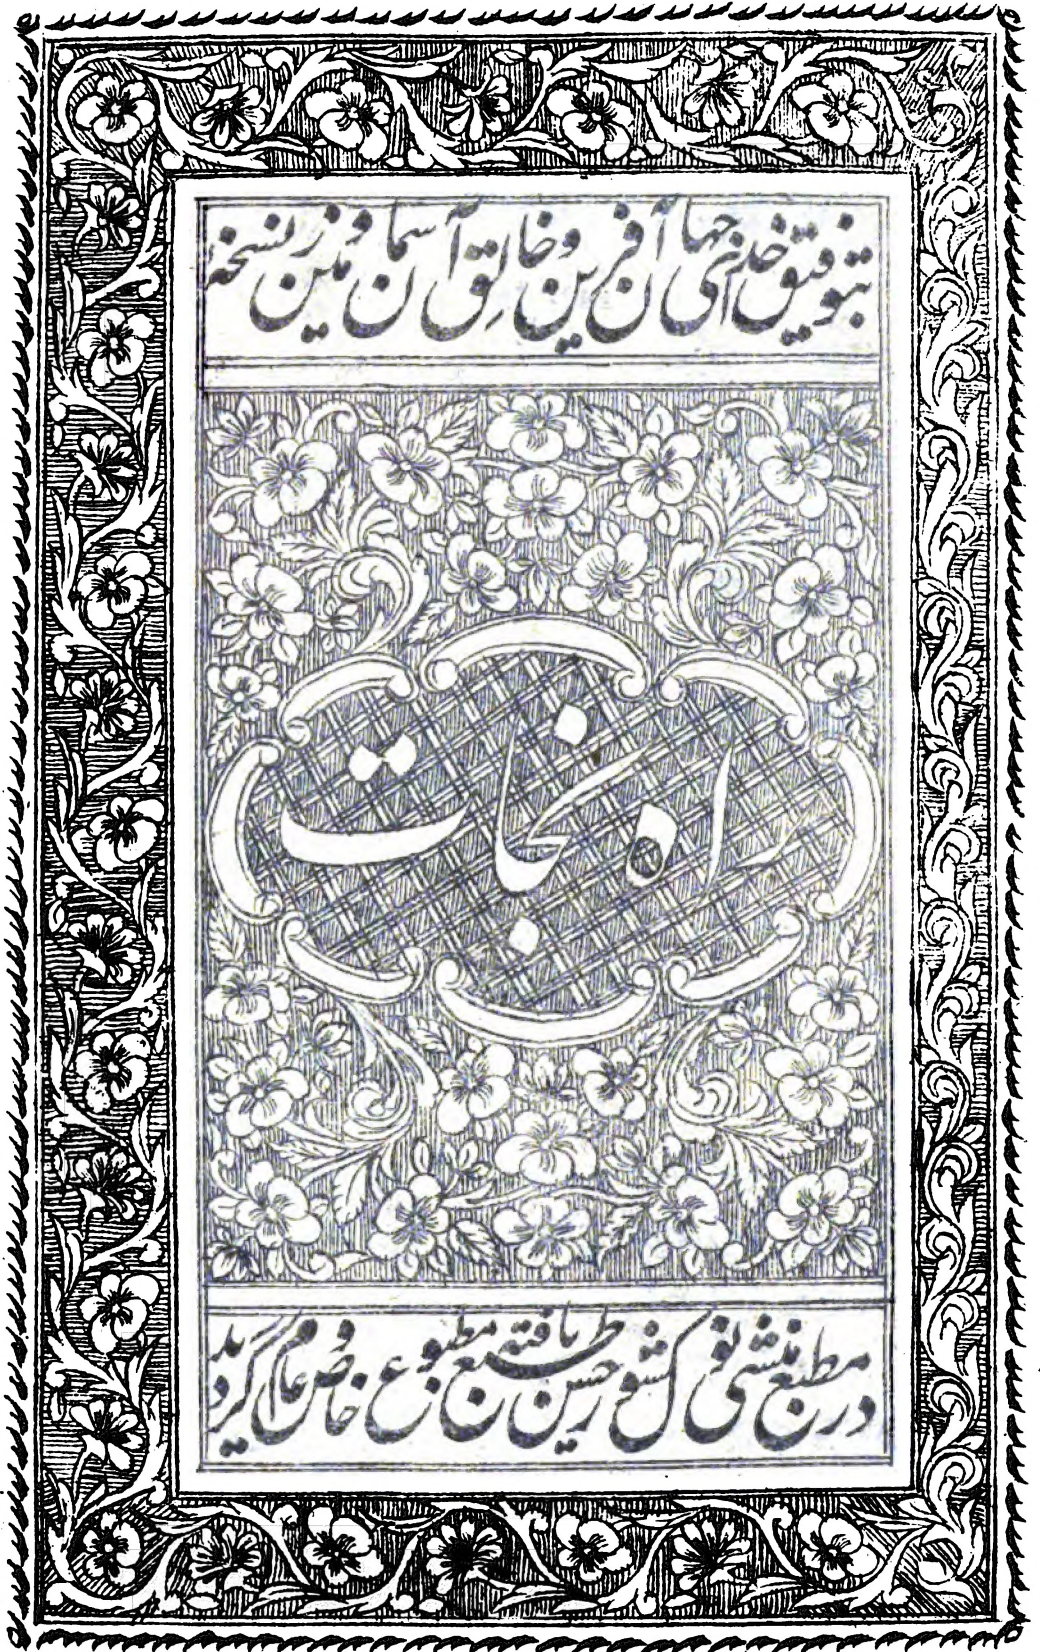 بتوفیق خدای جهان آفرین و خالق آسمان و زمین نسخه
راه نجات
در مطبع منشی نولکشور حسن طبع یافته مطبوع خاص و عام گردید